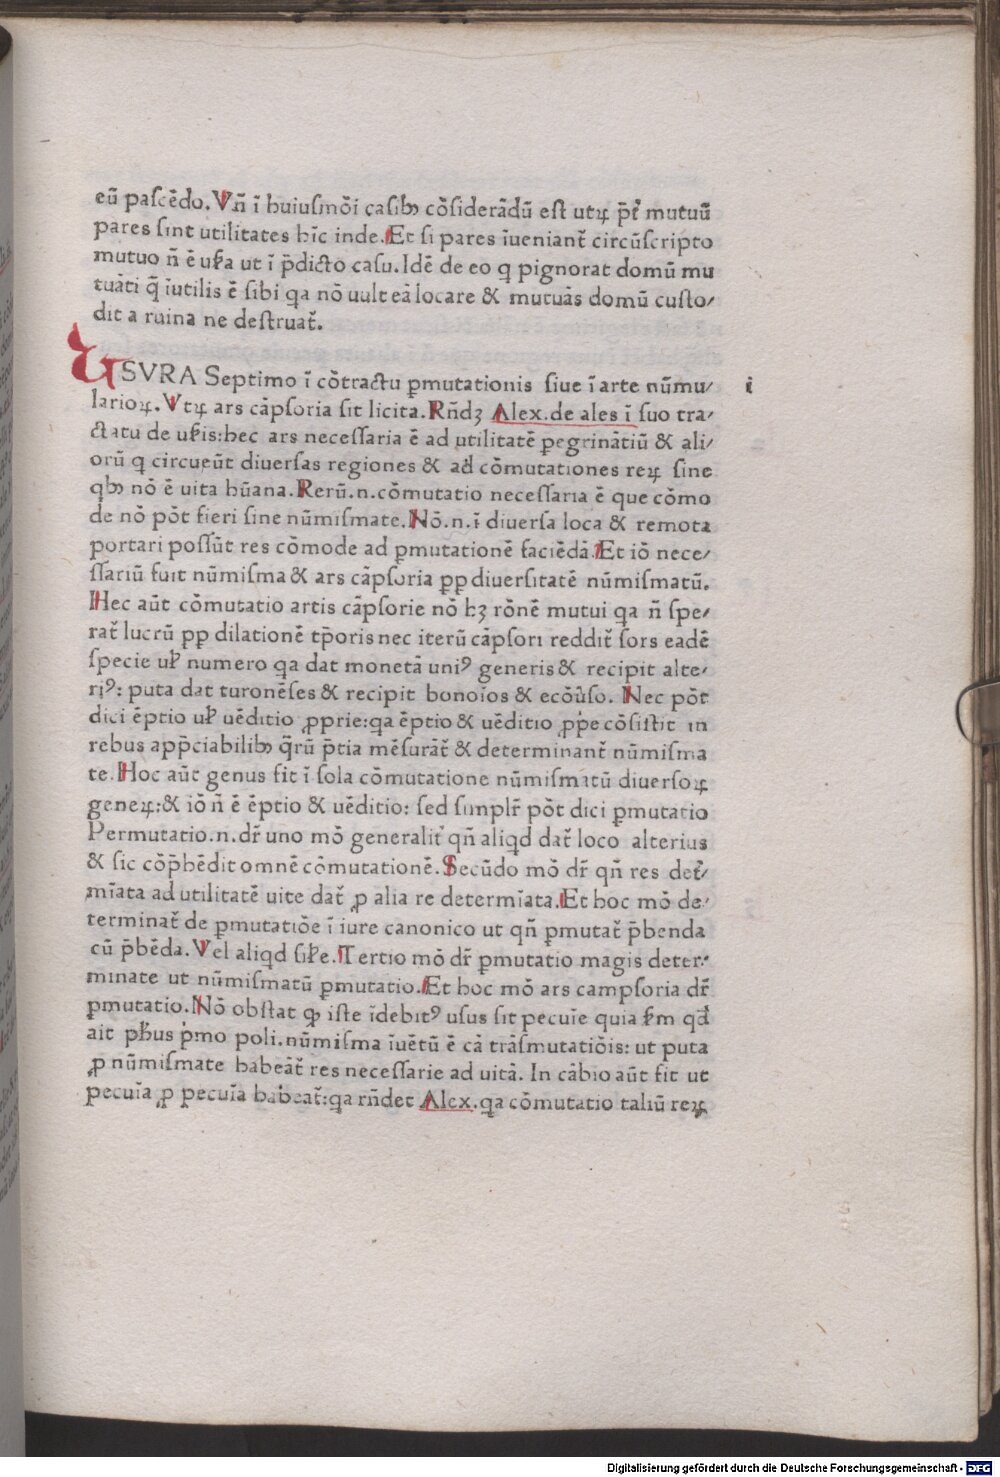 eū pascēdo. Vñ ī huiusmōi casibꝫ cōsiderādū est utꝝ p̄t̄ mutuū
pares sint utilitates hīc inde. Et si pares īueniant̄ circūscripto
mutuo ñ ē usͬa ut ī p̄dicto casu. Idē de eo q pignorat domū mu
tuāti q̄ īutilis ē sibi qa nō uult eā locare & mutuās domū custo/
dit a ruina ne destruat̄.
USVRA Septimo ī cōtractu ꝑmutationis siue ī arte nūmu/
i
larioꝝ. Vtꝝ ars cāpsoria sit licita. Rñdꝫ Alex. de ales ī suo tra/
ctatu de usͬis: hec ars necessaria ē ad utilitatē ꝑegrinātiū & ali/
orū q circueūt diuersas regiones & ad cōmutationes reꝝ sine
qbꝫ nō ē uita hūana. Rerū .n. cōmutatio necessaria ē que cōmo
de nō pōt fieri sine nūmismate. Nō .n. ī diuersa loca & remota
portari possūt res cōmode ad ꝑmutationē faciēdā. Et iō nece/
ssariū fuit nūmisma & ars cāpsoria ꝓp diuersitatē nūmismatū.
Hec aūt cōmutatio artis cāpsorie nō hꝫ rōnē mutui qa ñ spe/
rat̄ lucrū ꝓp dilationē tp̄oris nec iterū cāpsori reddit̄ sors eadē
specie ul̄ numero qa dat monetā uniꝰ generis & recipit alte/
riꝰ: puta dat turonēses & recipit bonoīos & ecōuͬso. Nec pōt
dici ēptio ul̄ uēditio ꝓprie: qa ēptio & uēditio ꝓpͥe cōsistit in
rebus app̄ciabilibꝫ q̄rū p̄tia mēsurāt̄ & determinant̄ nūmisma
te. Hoc aūt genus fit ī sola cōmutatione nūmismatū diuersoꝝ
geneꝝ: & iō ñ ē ēptio & uēditio: sed simplr̄ pōt dici ꝑmutatio
Permutatio .n. dr̄ uno mō generalit̄ qñ aliqd dat̄ loco alterius
& sic cōp̄hēdit omnē cōmutationē. Secūdo mō dr̄ qñ res det̄/
mīata ad utilitatē uite dat̄ ꝓ alia re determīata. Et hoc mō de/
terminat̄ de ꝑmutatiōe ī iure canonico ut qñ ꝑmutat̄ p̄benda
cū p̄bēda. Vel aliqd sil̄e. Tertio mō dr̄ ꝑmutatio magis deter/
minate ut nūmismatū ꝑmutatio. Et hoc mō ars campsoria dr̄
ꝑmutatio. Nō obstat ꝙ iste īdebitꝰ usus sit pecuīe quia sͨm qd̄
ait ph̄us pͥmo poli. nūmisma īuētū ē cā trāsmutatiōis: ut puta
ꝓ nūmismate habeāt̄ res necessarie ad uitā. In cābio aūt fit ut
pecuīa ꝓ pecuīa habeat̄: qa rñdet Alex. qa cōmutatio taliū reꝝ
Digitalisierung gefördert durch die Deutsche Forschungsgemeinschaft - DFG